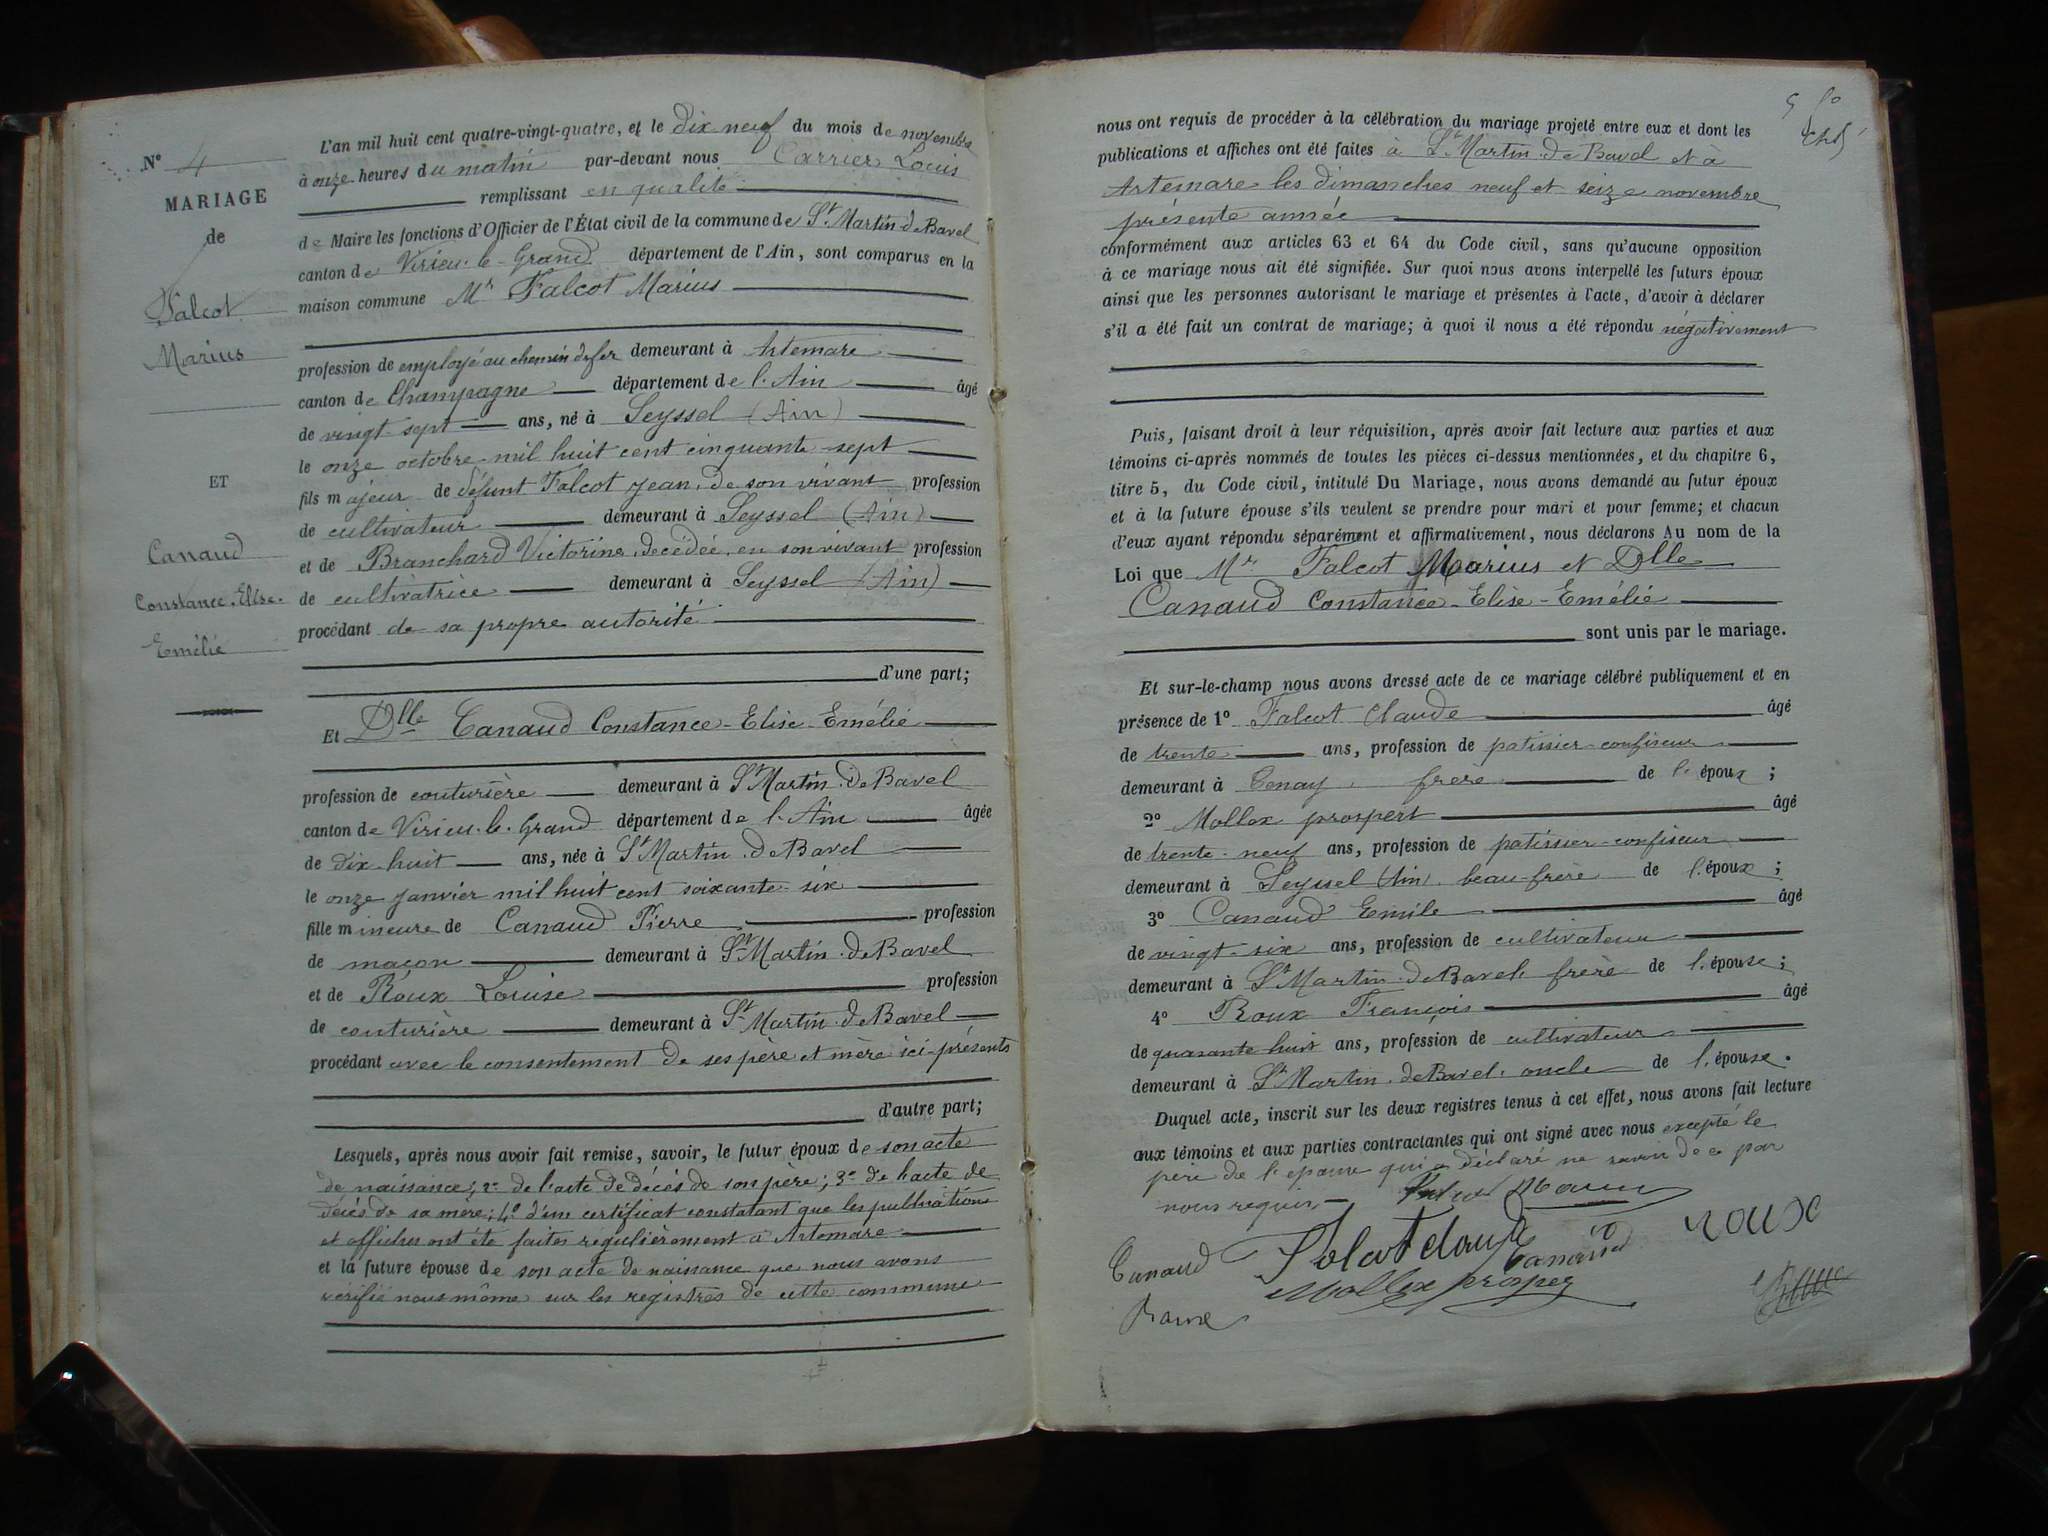 N° 4
MARIAGE
de
Falcot
Marius
ET
Canaud
Constance-Elise-
Emélie
L'an mil huit cent quatre-vingt-quatre, et le dix neuf du mois de novembre
à onze heures du matin par-devant nous Carrier Louis
remplissant en qualité
de Maire les fonctions d'Officier de l'État civil de la commune de St Martin-de Bavel
canton de Virieu-le-Grand département de l'Ain, sont comparus en la
maison commune Mr Falcot Marius
profession de employé au chemin de fer demeurant à Artemare
canton de Champagne département de l'Ain âgé
de vingt-sept ans, né à Seyssel (Ain)
le onze octobre mil huit cent cinquante-sept
fils majeur de défunt Falcot Jean, de son vivant profession
de cultivateur demeurant à Seyssel (Ain)
et de Branchard Victorine décédée, en son vivant profession
de cultivatrice demeurant à Seyssel (Ain)
procédant de sa propre autorité
d'une part;
Et Dlle Canaud Constance-Elise-Emélie
profession de couturière demeurant à St Martin-de Bavel
canton de Virieu-le-Grand département de l'Ain âgée
de dix-huit ans, née à St Martin-de Bavel
le onze janvier mil huit cent soixante-six
fille mineure de Canaud Pierre profession
de maçon demeurant à St Martin-de Bavel
et de Roux Louise profession
de couturière demeurant à St Martin-de Bavel
procédant avec le consentement de ses père et mère ici-présents
d'autre part;
Lesquels, après nous avoir fait remise, savoir, le futur époux de son acte
de naissance; 2° de l'acte de décès de son père; 3° de l'acte de
décès de sa mère; 4° d'un certificat constatant que les publications
et affiches ont été faites regulièrement à Artemare
et la future épouse de son acte de naissance que nous avons
vérifié nous même sur les registres de cette commune
nous ont requis de procéder à la célébration du mariage projeté entre eux et dont les
publications et affiches ont été faites à St Martin-de Bavel et à
Artemare les dimanches neuf et seize novembre
présente année
conformément aux articles 63 et 64 du Code civil, sans qu'aucune opposition
à ce mariage nous ait été signifiée. Sur quoi nous avons interpellé les futurs époux
ainsi que les personnes autorisant le mariage et présentes à l'acte, d'avoir à déclarer
s'il a été fait un contrat de mariage; à quoi il nous a été répondu négativement
Puis, faisant droit à leur réquisition, après avoir fait lecture aux parties et aux
témoins ci-après nommés de toutes les pièces ci-dessus mentionnées, et du chapitre 6,
titre 5, du Code civil, intitulé Du Mariage, nous avons demandé au futur époux
et à la future épouse s'ils veulent se prendre pour mari et pour femme; et chacun
d'eux ayant répondu séparément et affirmativement, nous déclarons Au nom de la
Loi que Mr Falcot Marius et Dlle
Canaud Constance-Elise-Emélie
sont unis par le mariage.
Et sur-le-champ nous avons dressé acte de ce mariage célébré publiquement et en
présence de 1° Falcot Claude âgé
de trente ans, profession de patissier-confiseur
demeurant à Tenay, frère de l'époux;
2° Mollex prospert âgé
de trente-neuf ans, profession de patissier-confiseur
demeurant à Seyssel (Ain), beau-frère de l'époux;
3° Canaud Emile âgé
de vingt-six ans, profession de cultivateur
demeurant à St Martin-de Bavel, frère de l'épouse;
4° Roux François âgé
de quarante huit ans, profession de cultivateur
demeurant à St Martin-de Bavel, oncle de l'épouse.
Duquel acte, inscrit sur les deux registres tenus à cet effet, nous avons fait lecture
aux témoins et aux parties contractantes qui ont signé avec nous excepté le
père de l'épouse qui a déclaré ne savoir de ce par
nous requis.
roux
Canaud Falcot claude Canaud
Mollex prosper
Roux